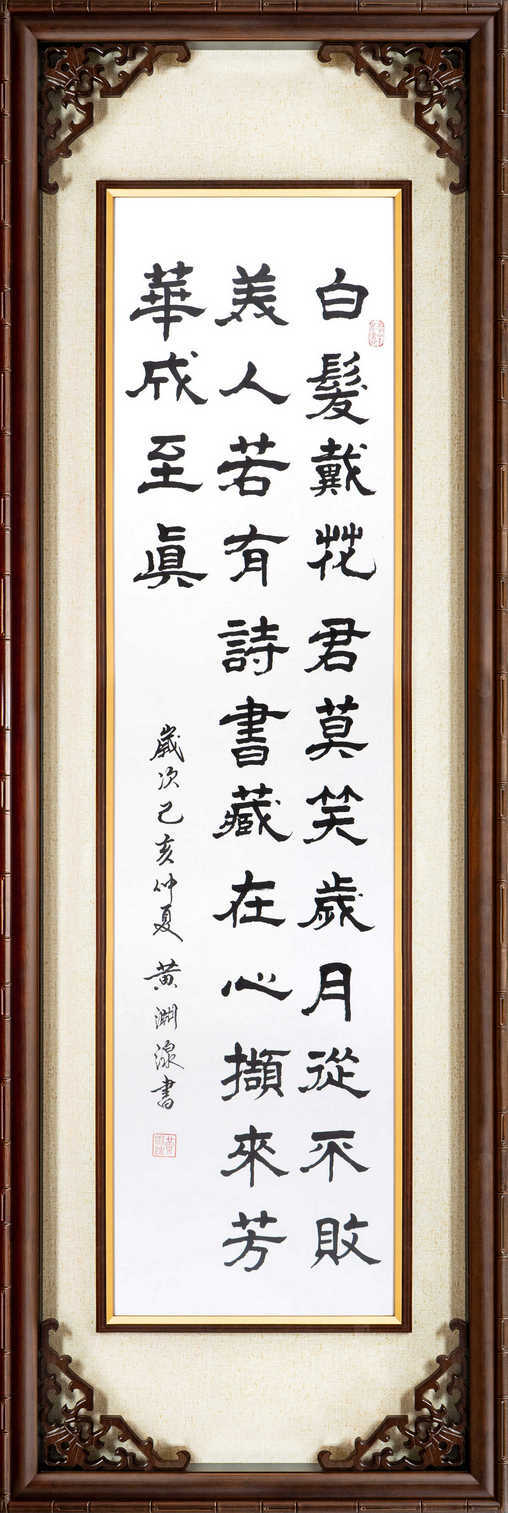 白髮戴花君莫笑歲月從不敗
美人若有詩書藏在心擷來芳
華成至眞
歲次己亥仲夏黃淵淙書